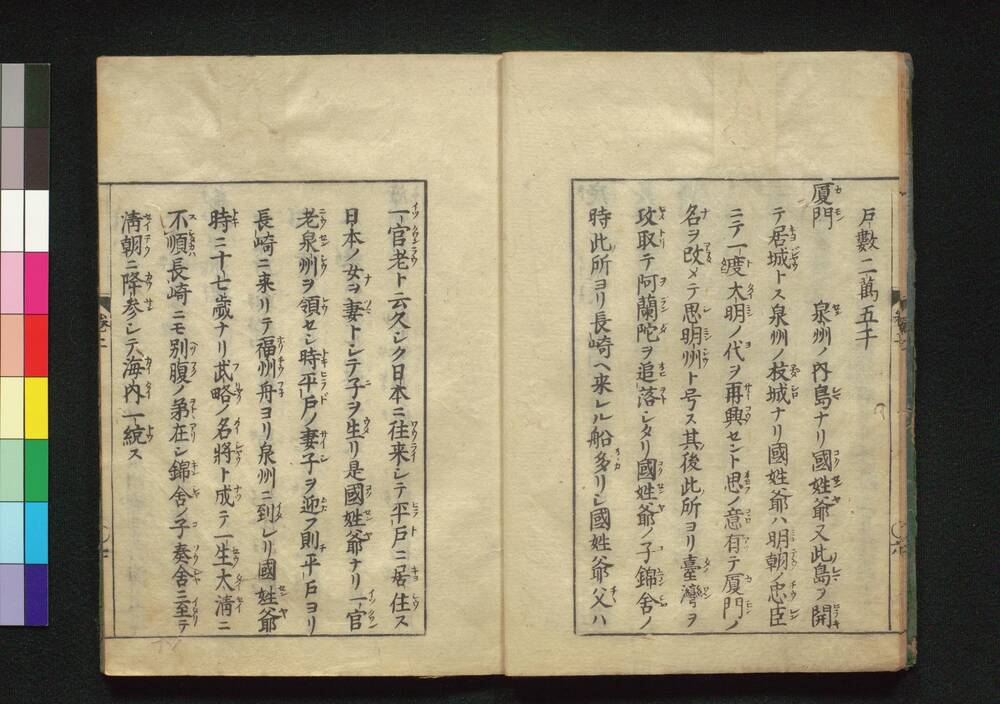 戸數二萬五千
厦門　泉州ノ內島ナリ國姓爺又此島ヲ開
テ居城トス泉州ノ枝城ナリ國姓爺ハ明朝ノ忠臣
ニテ一度大明ノ代ヲ再興セント思ノ意有テ厦門ノ
名ヲ改メテ思明州ト号ス其後此所ヨリ臺灣ヲ
攻取テ阿蘭陀ヲ追落シタリ國姓爺ノ子錦舍ノ
時此所ヨリ長崎ヘ来レル船多リシ國姓爺父ハ
一官老ト云久シク日本ニ往来シテ平戸ニ居住ス
日本ノ女ヲ妻トシテ子ヲ生リ是國姓爺ナリ一官
老泉州ヲ領セシ時平戸ノ妻子ヲ迎フ則平戸ヨリ
長崎ニ来リテ福州舟ヨリ泉州ニ到レリ國姓爺
時ニ十七歳ナリ武略ノ名將ト成テ一生大清ニ
不順長崎ニモ別腹ノ弟在シ錦舍ノ子奏舍ニ至テ
清朝ニ降参シテ海內一統ス
卷二